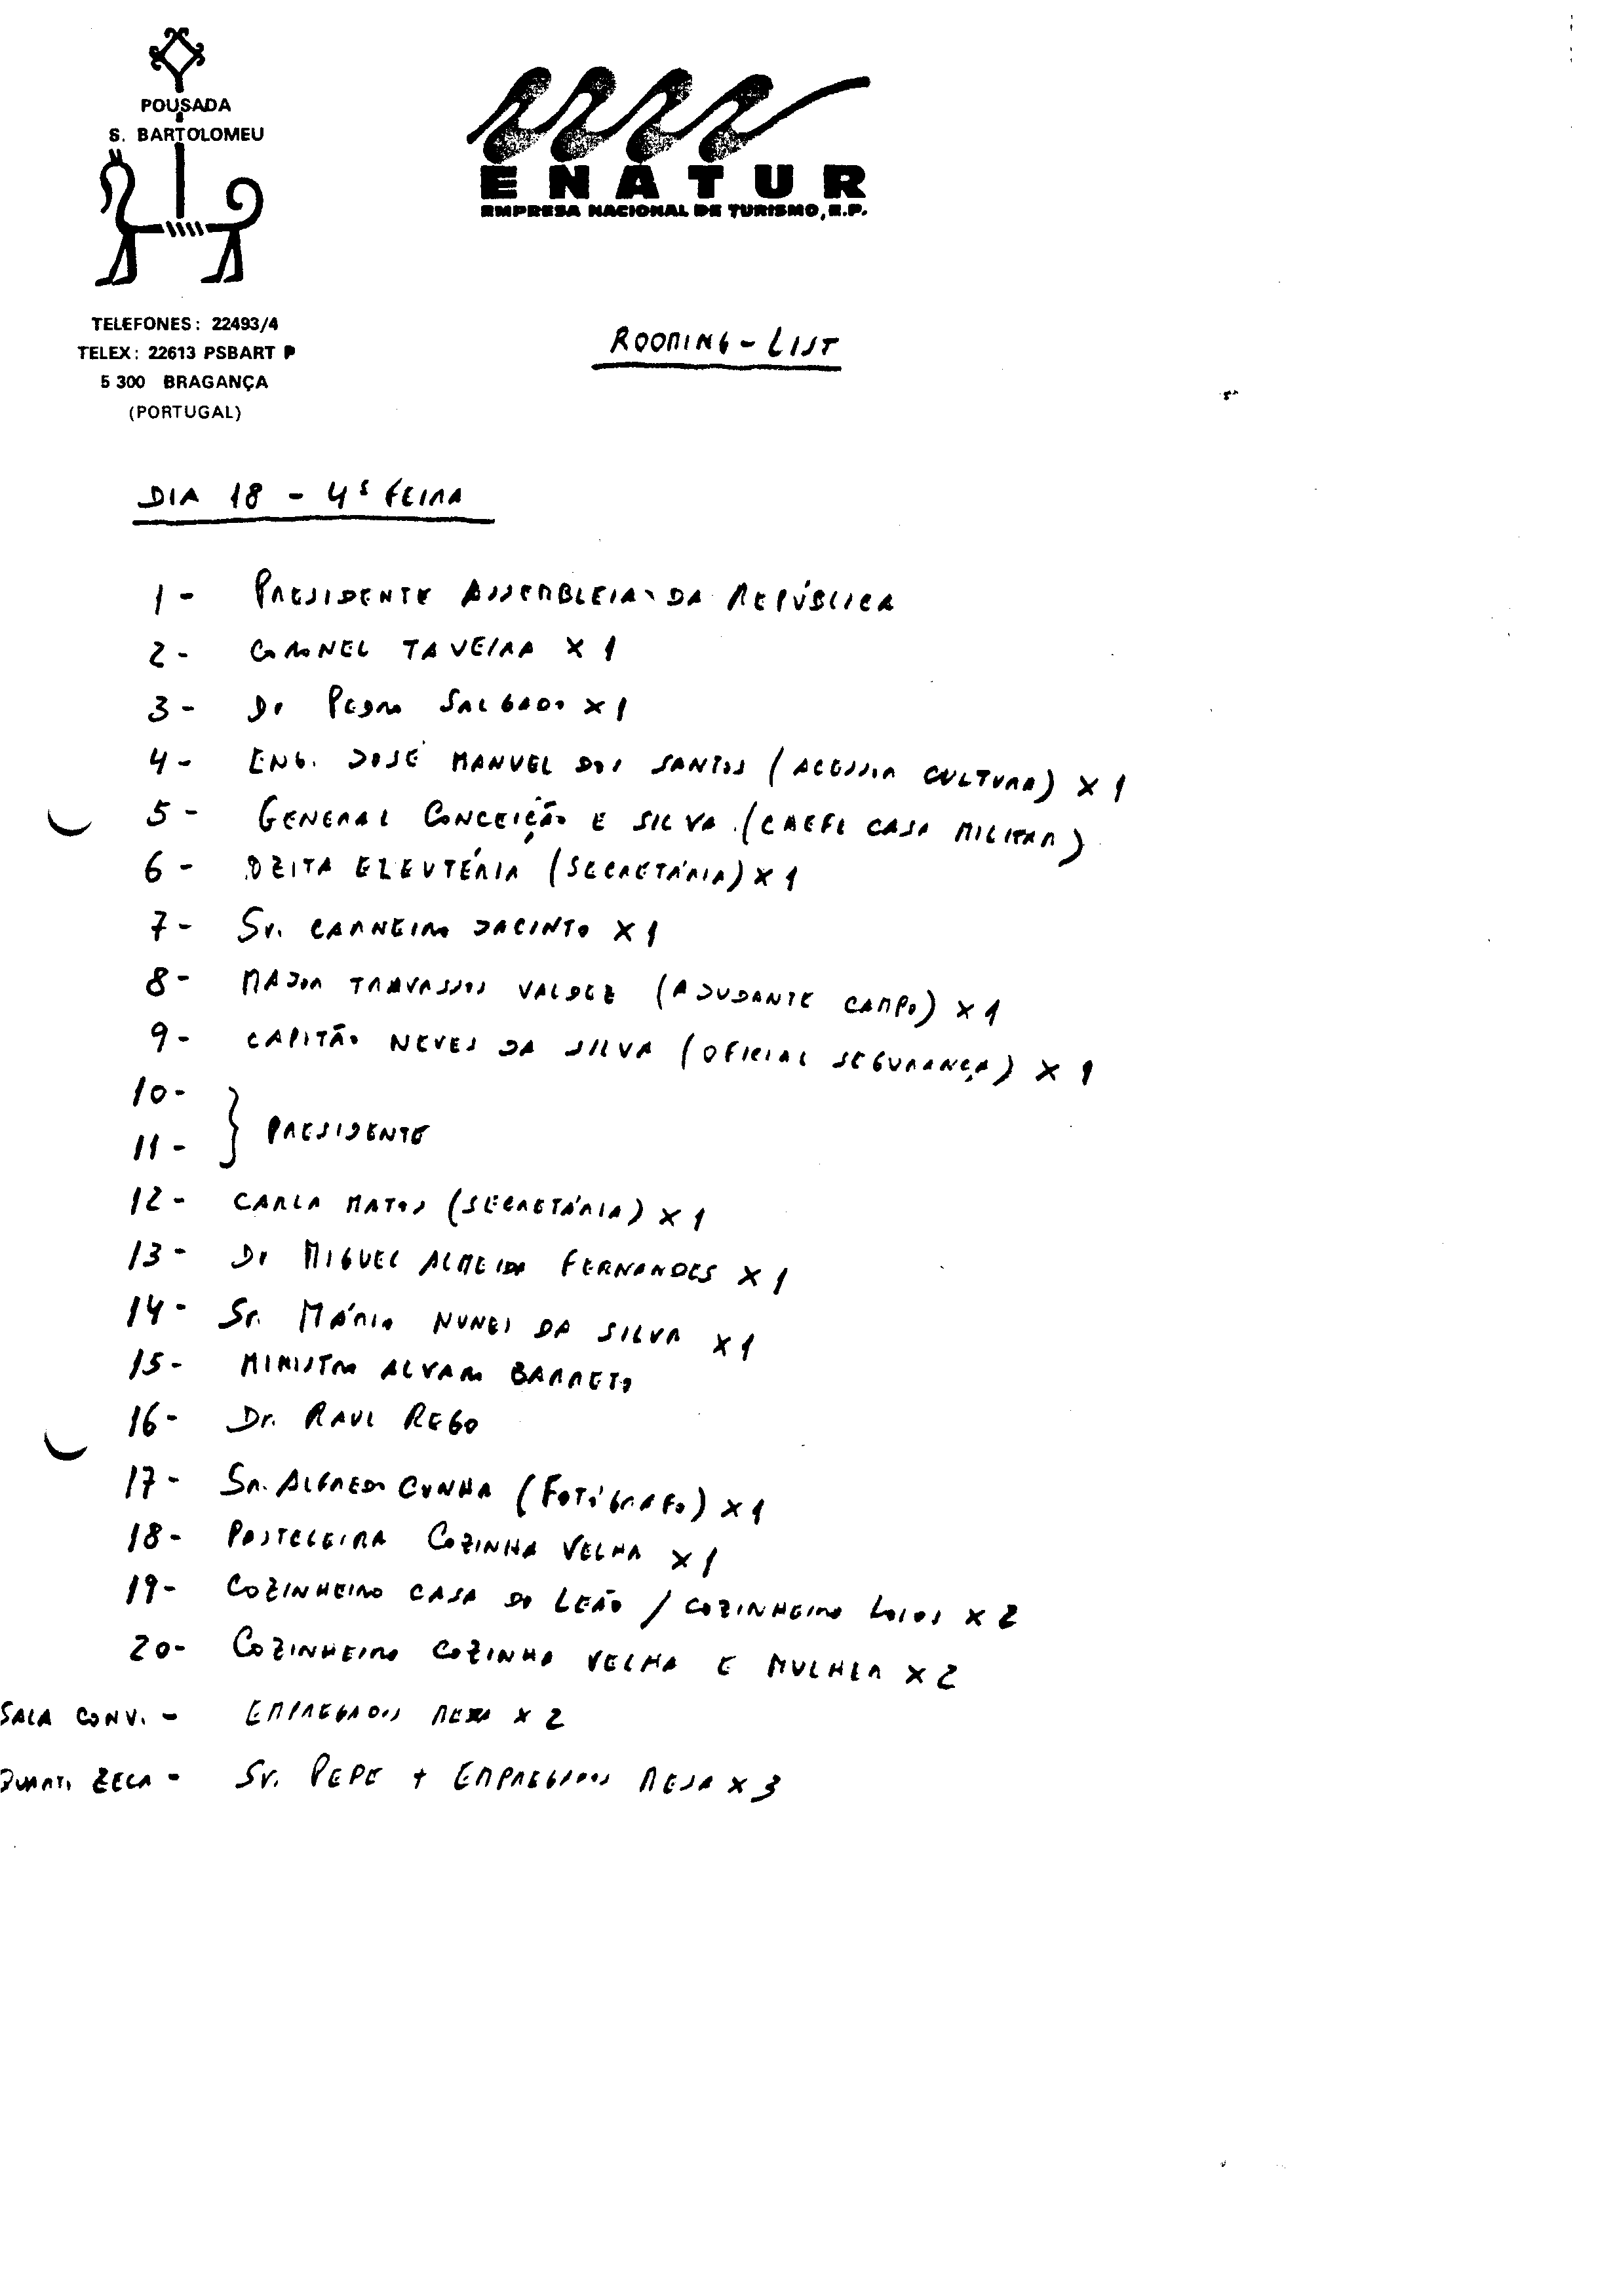 POUSADA
S. BARTOLOMEU
ENATUR
EMPRESA NACIONAL DE TURISMO, E.P.
TELEFONES: 22493/4
TELEX: 22613 PSBART P
5 300 BRAGANÇA
(PORTUGAL)
ROOMING - LIST
DIA 18 - 4ª FEIRA
1 - PRESIDENTE ASSEMBLEIA DA REPÚBLICA
2 - CORONEL TAVEIRA X 1
3 - Dr PEDRO SALGADO X 1
4 - ENG. JOSÉ MANUEL DOS SANTOS (ACESSOR CULTURA) X 1
5 - GENERAL CONCEIÇÃO E SILVA (CHEFE CASA MILITAR)
6 - OZITA ELEUTÉRIA (SECRETÁRIA) X 1
7 - Sr. CARNEIRO JACINTO X 1
8 - MAJOR TRAVASSOS VALDEZ (AJUDANTE CAMPO) X 1
9 - CAPITÃO NEVES DA SILVA (OFICIAL SEGURANÇA) X 1
10 -
11 - } PRESIDENTE
12 - CARLA MATOS (SECRETÁRIA) X 1
13 - Dr MIGUEL ALMEIDA FERNANDES X 1
14 - Sr. MÁRIO NUNES DA SILVA X 1
15 - MINISTRO ALVARO BARRETO
16 - Dr. RAUL REGO
17 - SR. ALFREDO CUNHA (FOTÓGRAFO) X 1
18 - PASTELEIRA COZINHA VELHA X 1
19 - COZINHEIRO CASA DO LEÃO / COZINHEIRO LOIOS X 2
20 - COZINHEIRO COZINHA VELHA E MULHER X 2
SALA CONV. - EMPREGADOS MESA X 2
ZECA - Sr. PEPE + EMPREGADOS MESA X 3